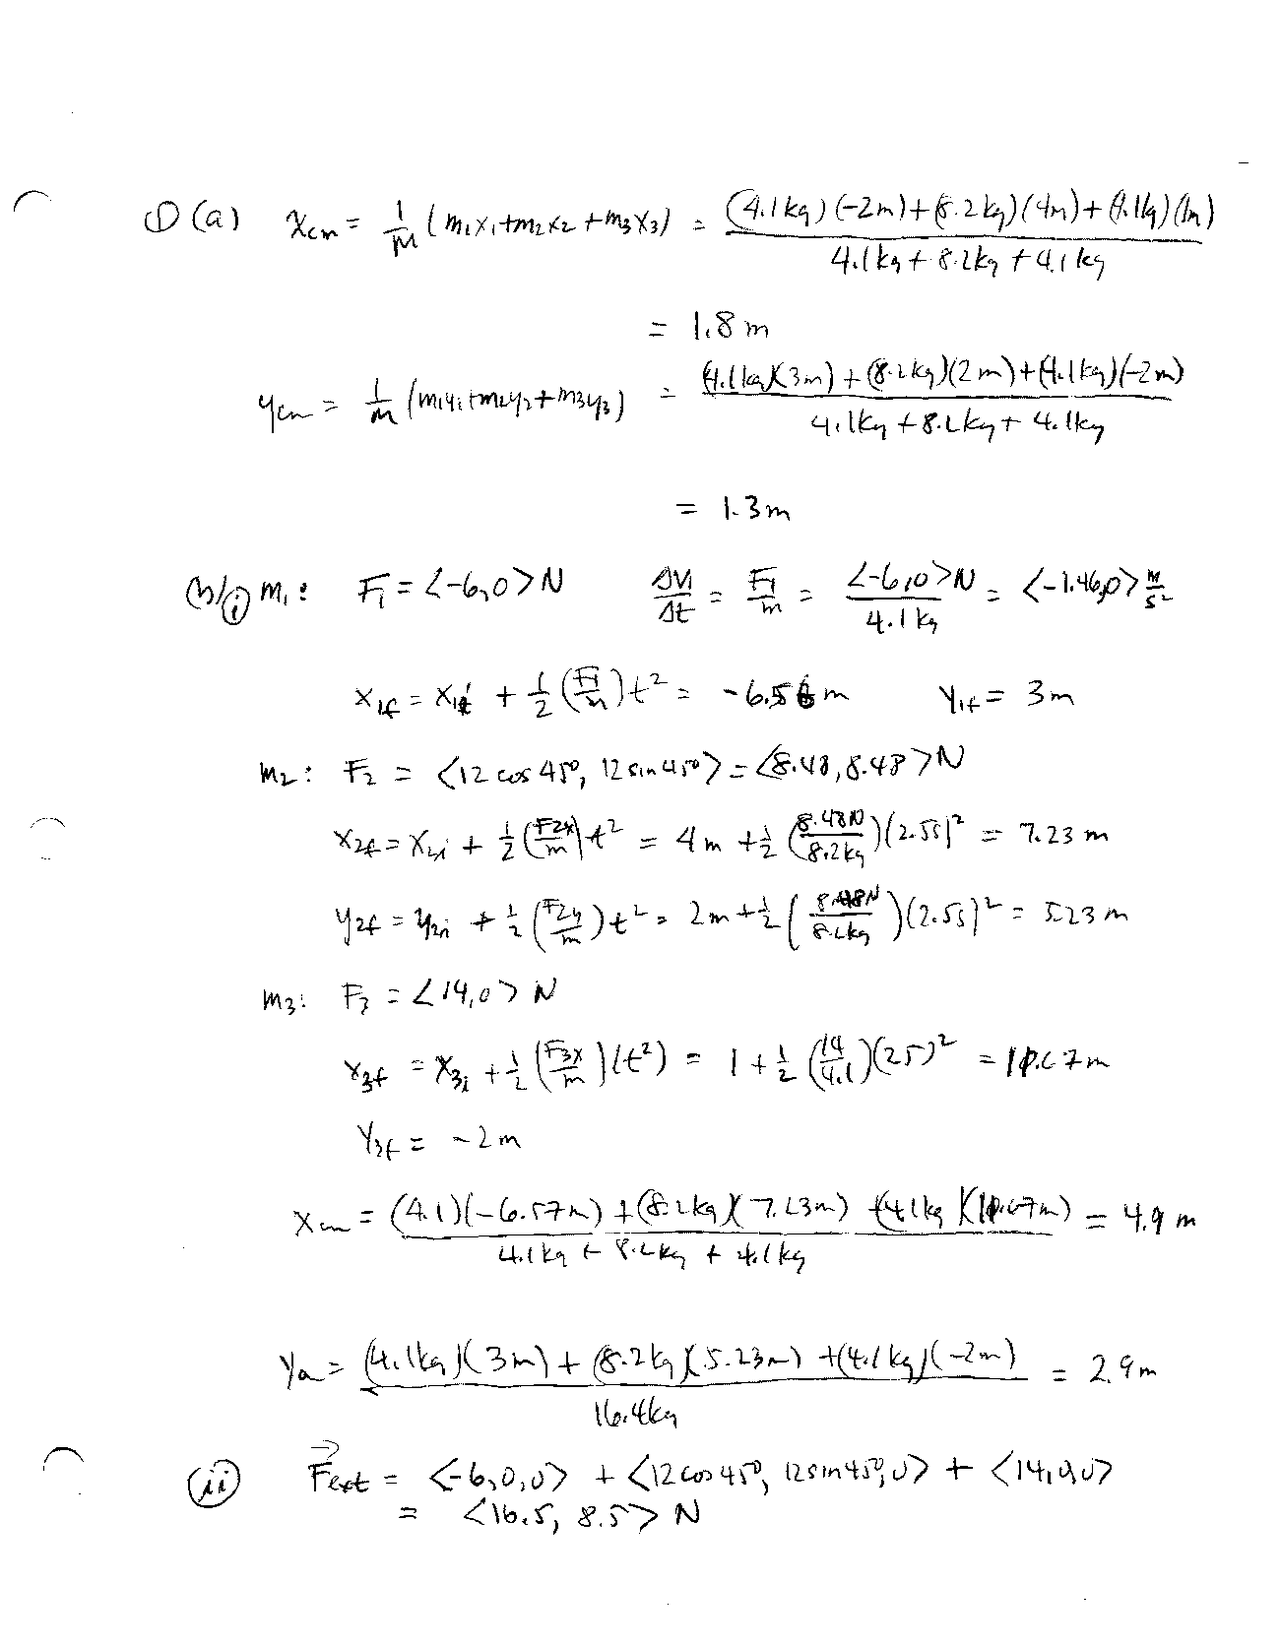 ① (a) x_cm = 1/M (m₁x₁+m₂x₂+m₃x₃) = ((4.1kg)(-2m)+(8.2kg)(4m)+(4.1kg)(1m))/(4.1kg+8.2kg+4.1kg)
= 1.8m
y_cm = 1/M (m₁y₁+m₂y₂+m₃y₃) = ((4.1kg)(3m)+(8.2kg)(2m)+(4.1kg)(-2m))/(4.1kg+8.2kg+4.1kg)
= 1.3m
(b)/ⓘ m₁: F₁ = <-6,0>N ΔV₁/Δt = F₁/m = <-6,0>N/4.1kg = <-1.46,0> m/s²
x₁f = x₁i + ½(F₁/m)t² = -6.56m y₁f = 3m
m₂: F₂ = <12 cos 45°, 12 sin 45°> = <8.48, 8.48>N
x₂f = x₂i + ½(F₂x/m)t² = 4m + ½(8.48N/8.2kg)(2.5s)² = 7.23 m
y₂f = y₂i + ½(F₂y/m)t² = 2m + ½(8.48N/8.2kg)(2.5s)² = 5.23 m
m₃: F₃ = <14,0> N
x₃f = x₃i + ½(F₃x/m)(t²) = 1 + ½(14/4.1)(2.5)² = 11.67m
y₃f = -2m
x_cm = ((4.1)(-6.57m) + (8.2kg)(7.23m) + (4.1kg)(11.67m))/(4.1kg + 8.2kg + 4.1kg) = 4.9 m
y_cm = ((4.1kg)(3m) + (8.2kg)(5.23m) + (4.1kg)(-2m))/16.4kg = 2.9m
(ii) F⃗ext = <-6,0,0> + <12cos45°, 12sin45°,0> + <14,0,0>
= <16.5, 8.5> N